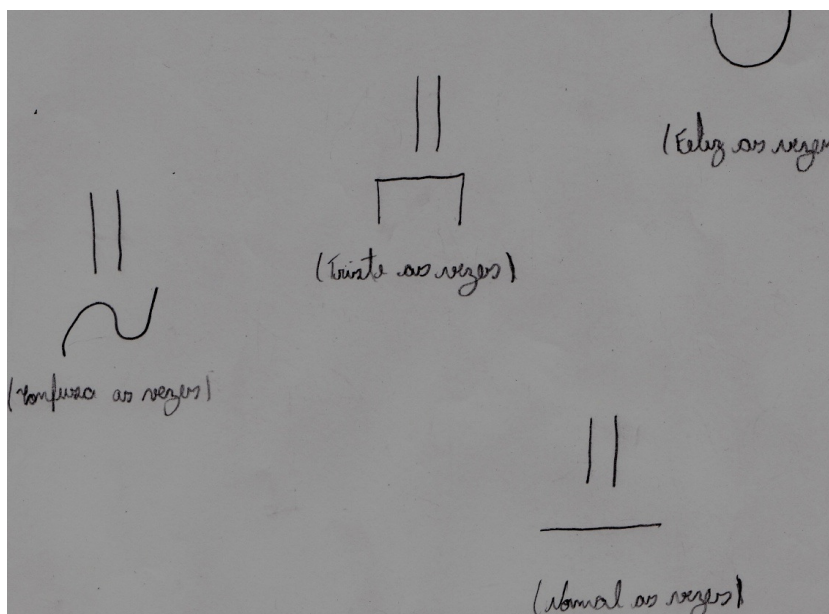 (Feliz as vezes
(Triste as vezes)
(Confusa as vezes)
(Normal as vezes)